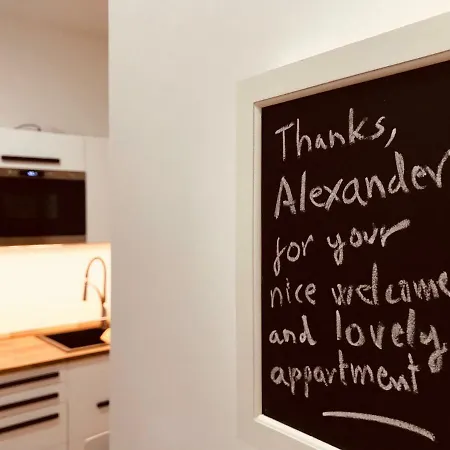 Thanks,
Alexander
for your
nice welcome
and lovely
appartment